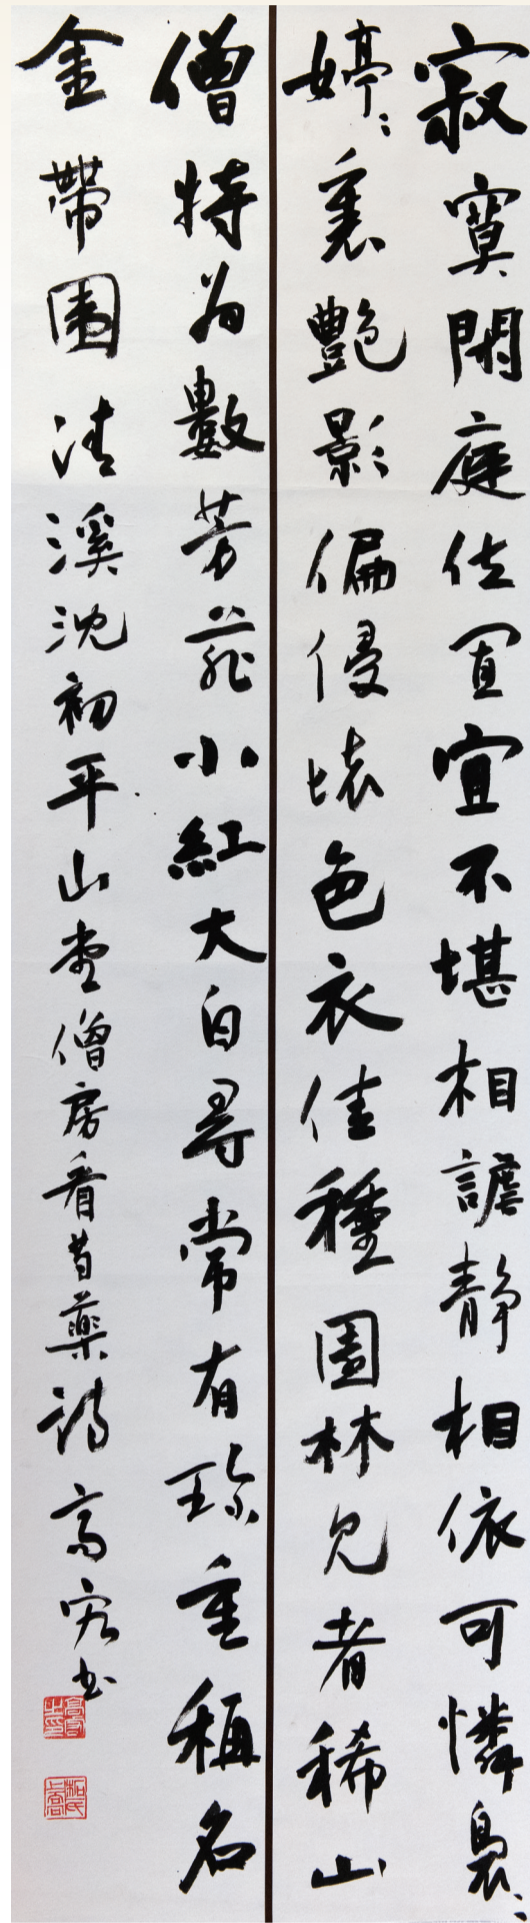 寂寞閑庭位置宜不堪相謔静相依可憐裊々
婷々裏艷影偏侵壞色衣佳種園林見者稀山
僧特為數芳菲小紅大白尋常有珍重稱名
金帶圍 清溪沈初平山堂僧房看芍藥詩 高 书